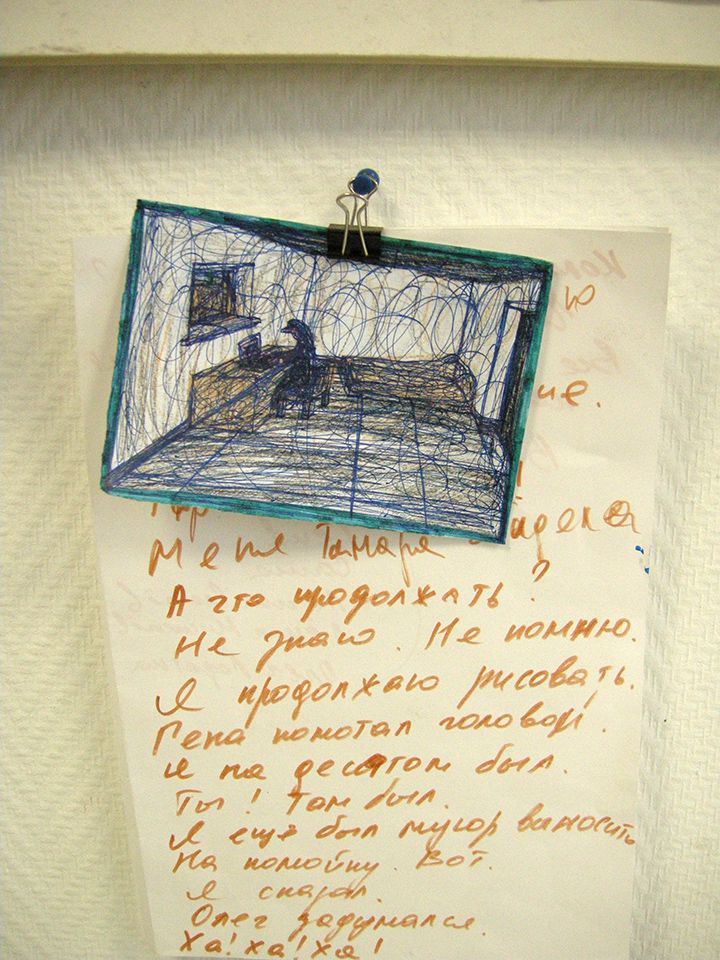 ю
ие.
!
Меня Тамара
А что продолжать?
Не знаю. Не помню.
Я продолжаю рисовать.
Гена помотал головой.
Я на десятом был.
Ты! Там был.
Я ещё был мусор выносить
На помойку. Вот.
Я сказал.
Олег задумался.
Ха! ха! Ха!